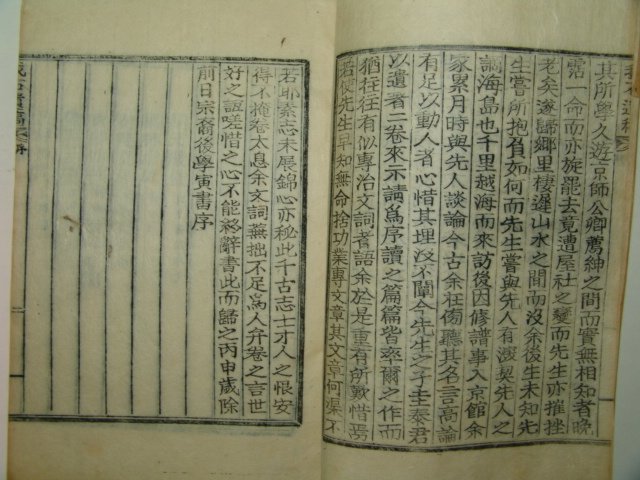 其所學久遊京師公卿薦紳之間而實無相知者晩
霑一命而亦旋罷去竟遭屋社之變而先生亦摧挫
老矣遂歸鄕里棲遲山水之間而沒余後生未知先
生嘗所抱負如何而先生嘗與先人有深契先人之
謫海島也千里越海而來訪後因修譜事入京館余
家累月時與先人談論今古余在傍聽其名言高論
有足以動人者心惜其埋沒不闡今先生之子圭泰君
以遺者二卷來示請爲序讀之篇篇皆率爾之作而
猶往往有似專治文詞者語余於是重有所歎惜焉
若使先生早知無命捨功業專文章其文章何渠不
若耶素志未展錦心亦秘此千古志士才人之恨安
得不掩卷太息余文詞蕪拙不足爲人弁卷之言世
好之誼嗟惜之心不能終辭書此而歸之丙申歲除
前日宗裔後學寅書序